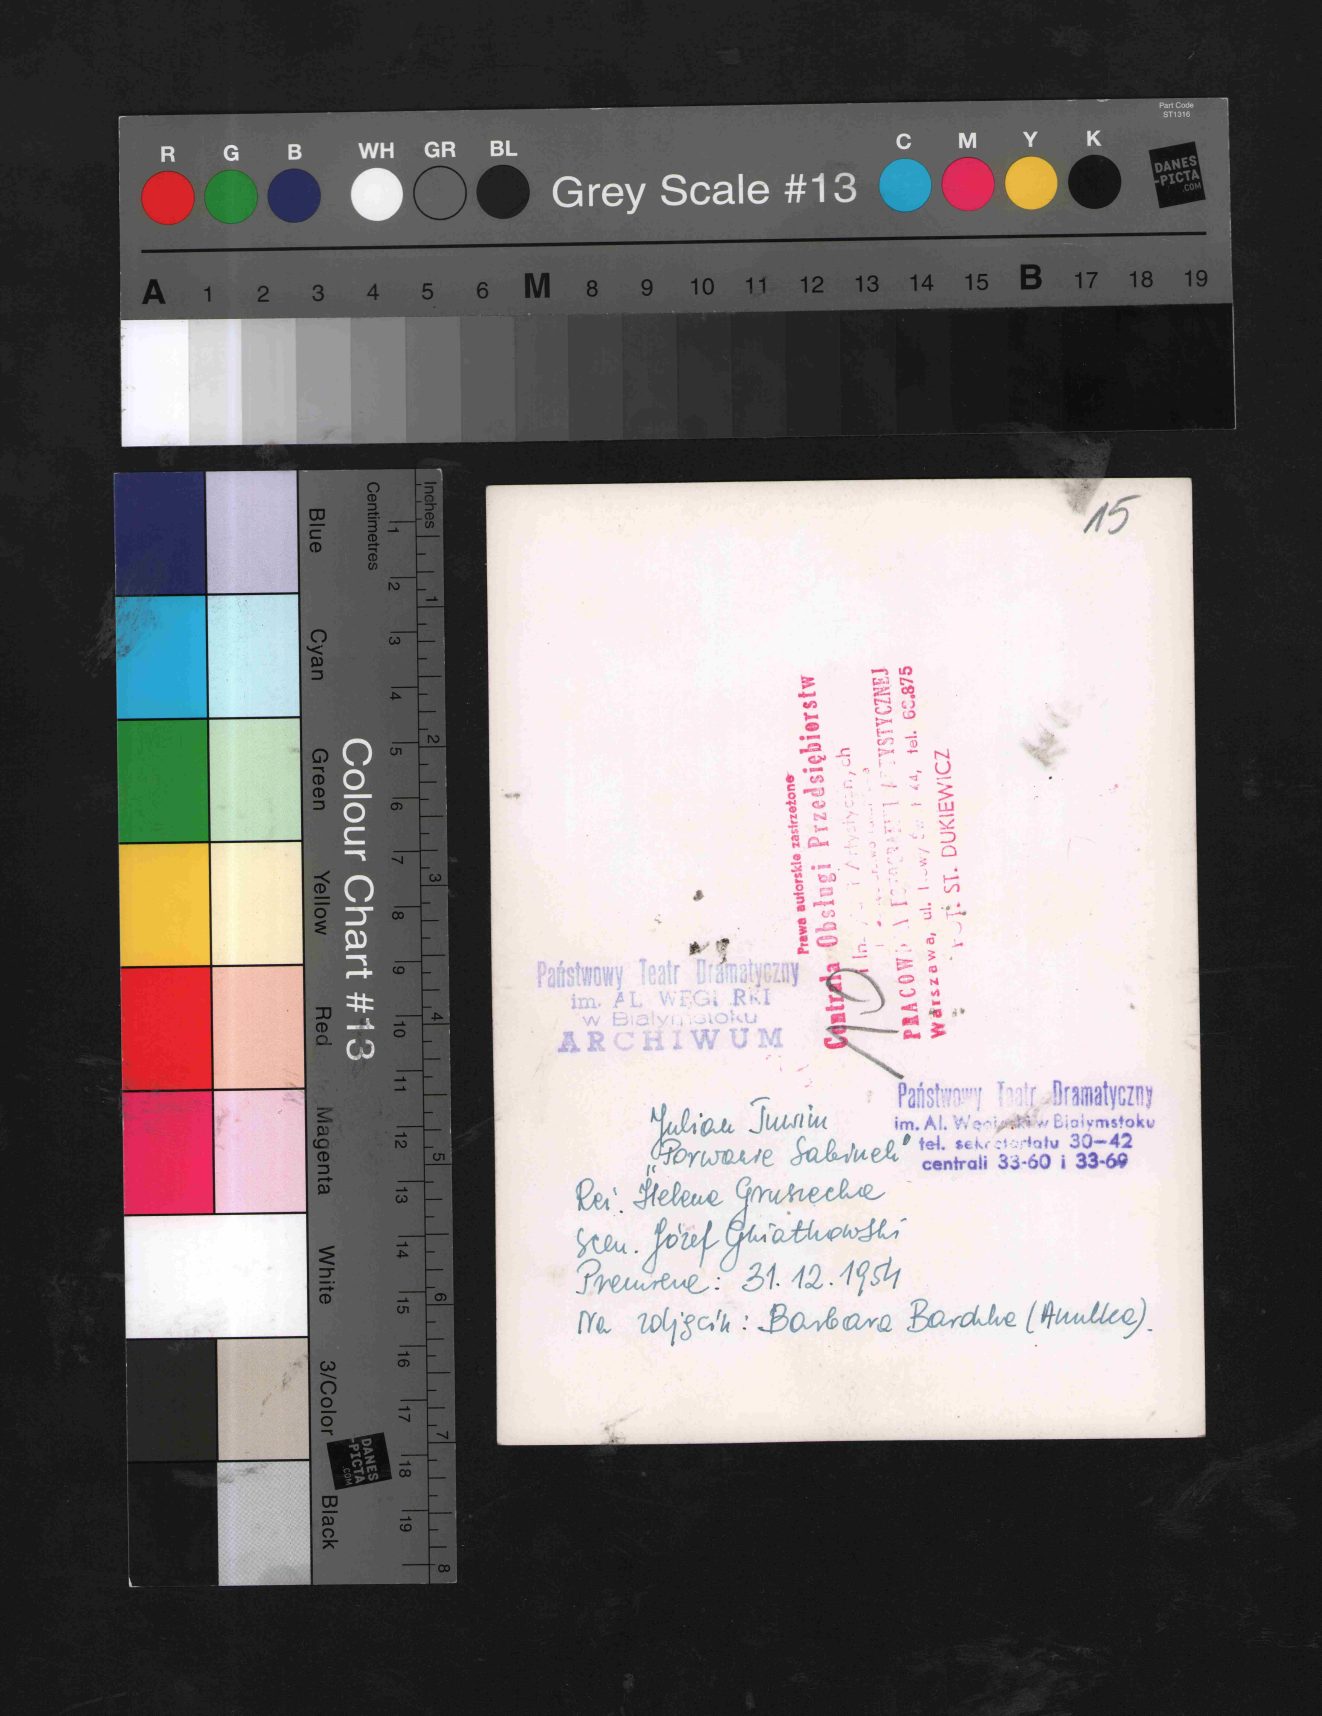 Part Code
ST1316
R G B WH GR BL Grey Scale #13 C M Y K
DANES
-PICTA
.COM
A 1 2 3 4 5 6 M 8 9 10 11 12 13 14 15 B 17 18 19
Blue
Cyan
Green
Yellow
Red
Magenta
White
3/Color
Black
Colour Chart #13
DANES
-PICTA
.COM
Centimetres
1 2 3 4 5 6 7 8 9 10 11 12 13 14 15 16 17 18 19
Inches
1 2 3 4 5 6 7 8
15
Prawa autorskie zastrzeżone
Centrala Obsługi Przedsiębiorstw
i Artystycznych
ARTYSTYCZNEJ
Warszawa, ul. tel. 60.875
FOT. ST. DUKIEWICZ
10
Państwowy Teatr Dramatyczny
im. AL. WĘGIERKI
w Białymstoku
ARCHIWUM
Państwowy Teatr Dramatyczny
im. Al. Węgierki w Białymstoku
tel. sekretariatu 30-42
centrali 33-60 i 33-69
Julian Tuwim
"Porwanie Sabinek"
Reż. Helena Grusiecka
Scen. Józef Gwiatkowski
Premiera: 31.12.1954
Na zdjęciu: Barbara Bardzka (Anulka).